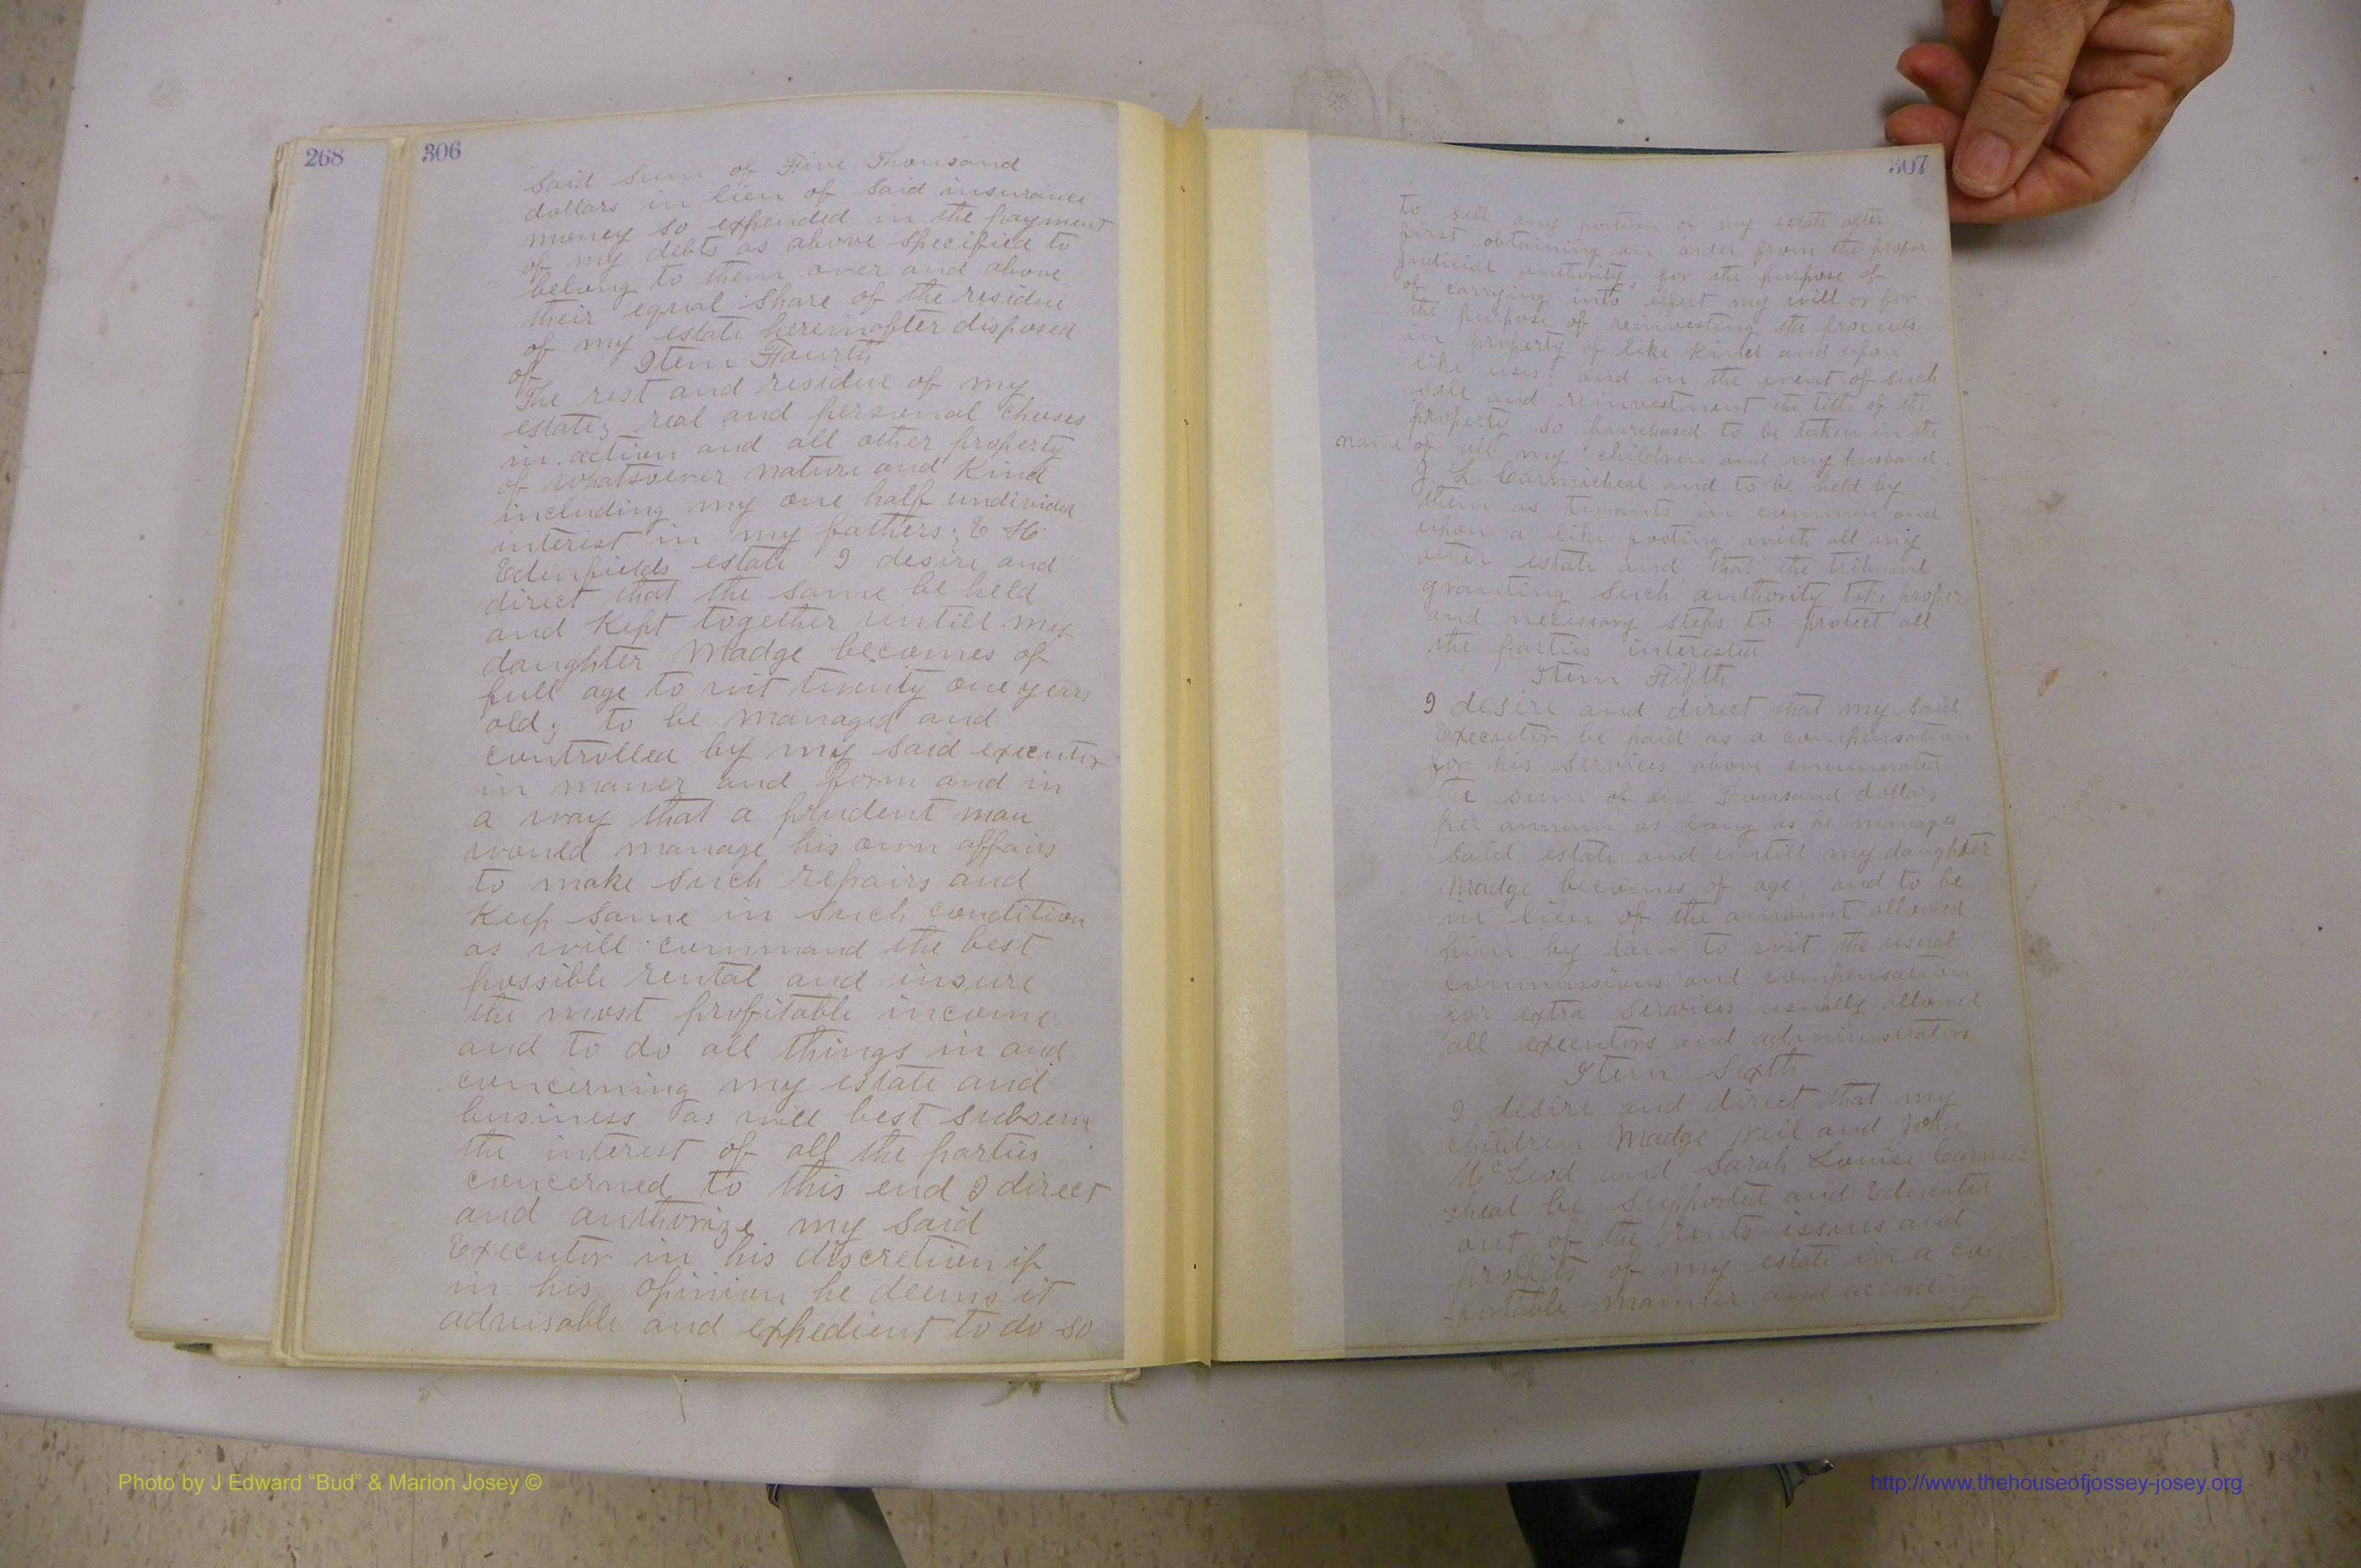 268
306
said sum of Five Thousand
dollars in lieu of said insurance
money so expended in the payment
of my debts as above specified to
belong to them over and above
their equal share of the residue
of my estate hereinafter disposed
of
Item Fourth
The rest and residue of my
estate, real and personal choses
in action and all other property
of whatsoever nature and Kind
including my one half undivided
interest in my fathers, E H
Edenfields estate I desire and
direct that the same be held
and Kept together untill my
daughter Madge becomes of
full age to wit twenty one years
old; to be managed and
controlled by my said executor
in maner and form and in
a way that a prudent man
would manage his own affairs
to make such repairs and
Keep same in such condition
as will command the best
possible rental and insure
the most profitable income
and to do all things in and
concerning my estate and
business as will best subserv
the interest of all the parties
concerned to this end I direct
and authorize my said
Executor in his discretion if
in his opinion he deems it
advisable and expedient to do so
307
to sell any portion of my estate after
first obtaining an order from the proper
judicial authority, for the purpose of
of carrying into effect my will or for
the purpose of reinvesting the proceeds
in property of like Kind and upon
like uses: and in the event of such
sale and reinvestment the title of the
property so purchased to be taken in the
name of all my children and my husband
J L Carmicheal and to be held by
them as tenants in common and
upon a like footing with all my
other estate and that the tribunal
granting such authority take proper
and necessary steps to protect all
the parties interested
Item Fifth
I desire and direct that my said
Executor be paid as a compensation
for his services above enumerated
the sum of one Thousand dollars
per annum as long as he manages
said estate and untill my daughter
Madge becomes of age; and to be
in lieu of the amount allowed
him by law to wit the usual
commissions and compensation
for extra services usually allowed
all executors and administrators
Item Sixth
I desire and direct that my
children Madge Neil and John
McLeod and Sarah Louise Carmi-
-cheal be supported and Educated
out of the rents issues and
proffits of my estate in a com-
-fortable manner and according
Photo by J Edward “Bud” & Marion Josey ©
http://www.thehouseofjossey-josey.org